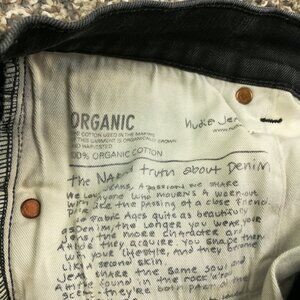 ORGANIC
THE COTTON USED IN THE MAKING
OF THIS GARMENT IS ORGANICALLY GROWN
AND HARVESTED
100% ORGANIC COTTON
Nudie Je
www.nu
the NAk truth about Denim
JEANS, A passion we share
We Love Jeans
one mourns A wornout
pair like the passing of a close Friend
No Fabric Ages quite as beautifully
as Denim, the longer you wear your
jeans, the more character and
Attitude they acquire. You shape them
with your lifestyle, and they become
like a second skin.
Jeans share the same soul and
Attitude found in the